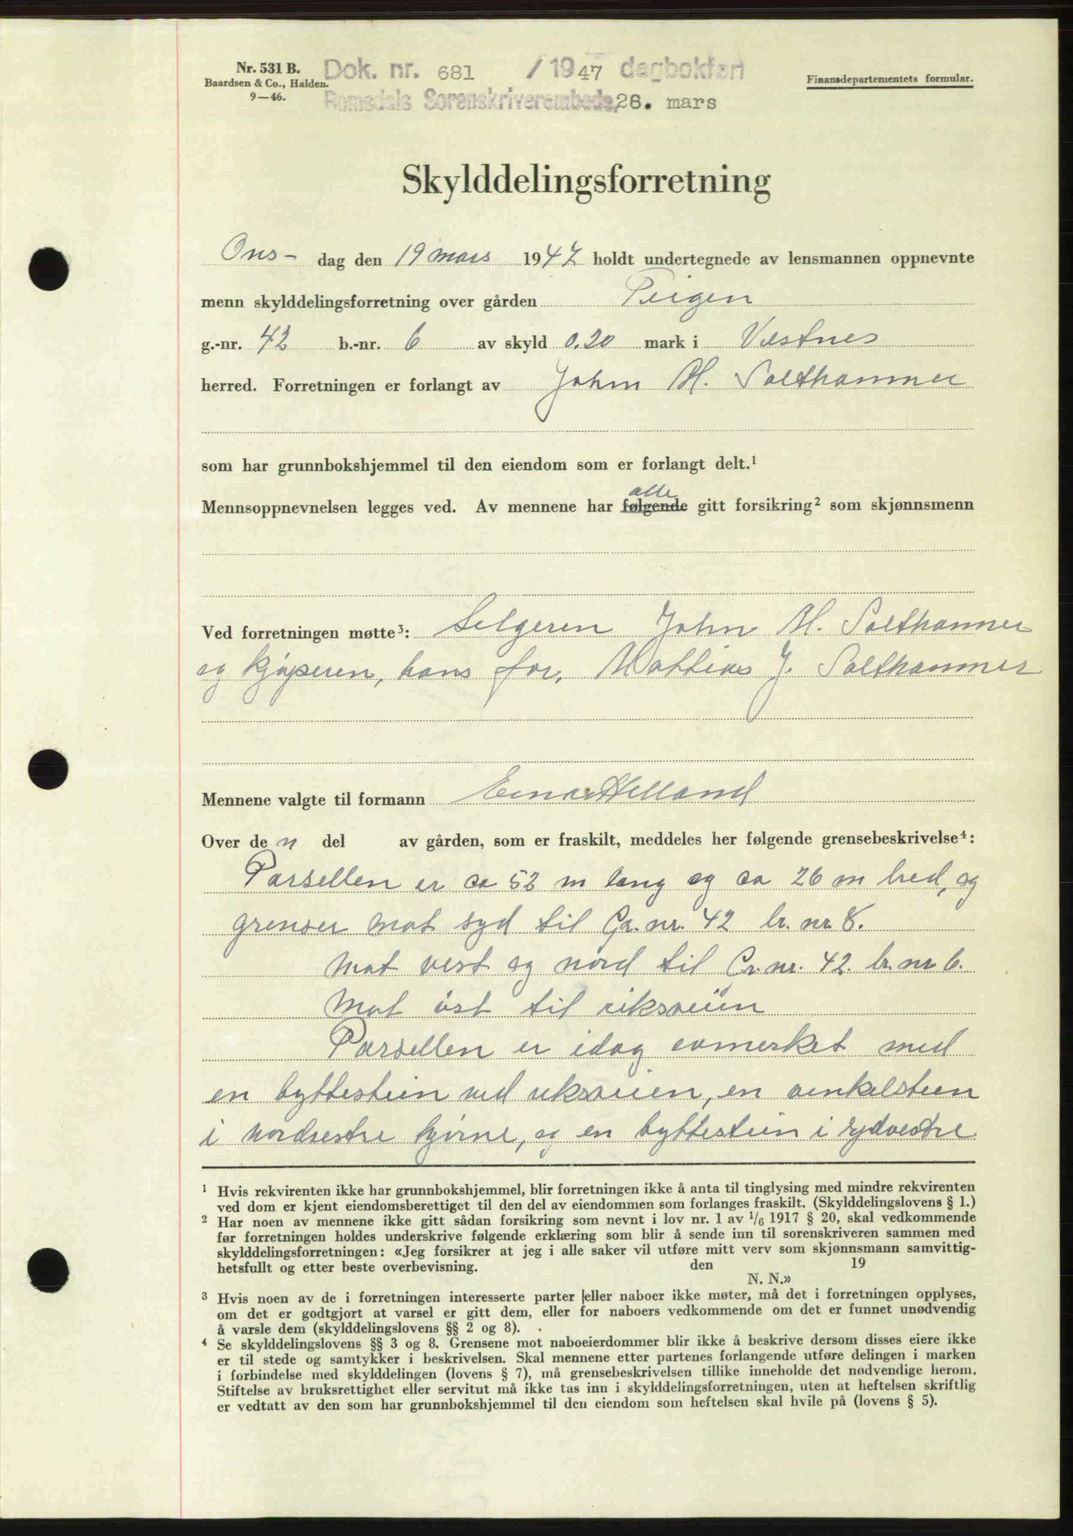 Nr. 531 B.
Baardsen & Co., Halden.
9—46.
Dok. nr. 681 /1947 dagbokført
Romsdals Sorenskriverembede, 26. mars
Finansdepartementets formular.
Skylddelingsforretning
Ons- dag den 19 mars 1947 holdt undertegnede av lensmannen oppnevnte
menn skylddelingsforretning over gården Teigen
g.-nr. 42 b.-nr. 6 av skyld 0.20 mark i Vestnes
herred. Forretningen er forlangt av John M. Salthammer
som har grunnbokshjemmel til den eiendom som er forlangt delt.¹
Mennsoppnevnelsen legges ved. Av mennene har følgende alle gitt forsikring² som skjønnsmenn
Ved forretningen møtte³: Selgeren John M. Salthammer
og kjøperen, hans far, Mattias J. Salthammer
Mennene valgte til formann Einar Helland
Over de n del av gården, som er fraskilt, meddeles her følgende grensebeskrivelse⁴:
Parsellen er ca 52 m lang og ca 26 m bred, og
grenser mot syd til Gr. nr. 42 br. nr 8.
Mot vest og nord til Gr. nr. 42. br. nr 6.
Mot øst til riksveien
Parsellen er idag avmerket med
en byttestein ved riksveien, en vinkelstein
i nordvestre hjørne, og en byttestein i sydvestre
¹ Hvis rekvirenten ikke har grunnbokshjemmel, blir forretningen ikke å anta til tinglysing med mindre rekvirenten
ved dom er kjent eiendomsberettiget til den del av eiendommen som forlanges fraskilt. (Skylddelingslovens § 1.)
² Har noen av mennene ikke gitt sådan forsikring som nevnt i lov nr. 1 av 1/6 1917 § 20, skal vedkommende
før forretningen holdes underskrive følgende erklæring som blir å sende inn til sorenskriveren sammen med
skylddelingsforretningen: «Jeg forsikrer at jeg i alle saker vil utføre mitt verv som skjønnsmann samvittig-
hetsfullt og etter beste overbevisning. den 19
N. N.»
³ Hvis noen av de i forretningen interesserte parter eller naboer ikke møter, må det i forretningen opplyses,
om det er godtgjort at varsel er gitt dem, eller for naboers vedkommende om det er funnet unødvendig
å varsle dem (skylddelingslovens §§ 2 og 8).
⁴ Se skylddelingslovens §§ 3 og 8. Grensene mot naboeierdommer blir ikke å beskrive dersom disses eiere ikke
er til stede og samtykker i beskrivelsen. Skal mennene etter partenes forlangende utføre delingen i marken
i forbindelse med skylddelingen (lovens § 7), må grensebeskrivelsen tillike inneholde det nødvendige herom.
Stiftelse av bruksrettighet eller servitut må ikke tas inn i skylddelingsforretningen, uten at heftelsen skriftlig
er vedtatt av den som har grunnbokshjemmel til den eiendom som heftelsen skal hvile på (lovens § 5).